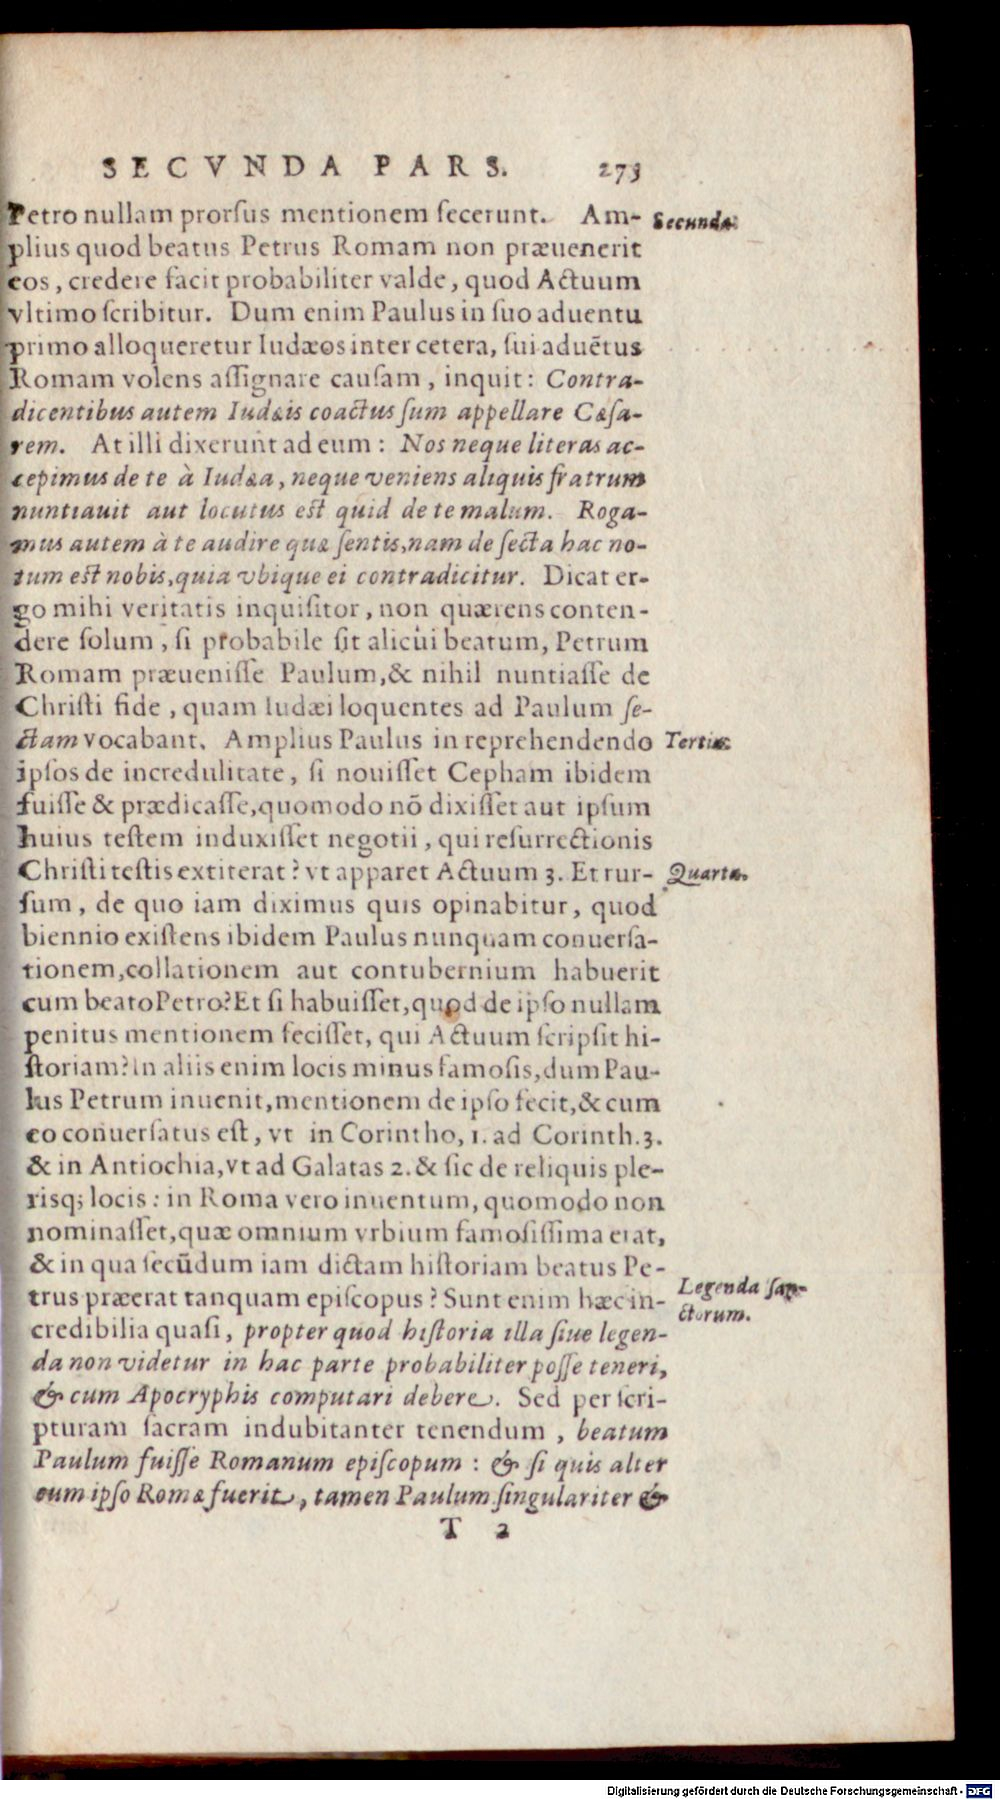 SECVNDA PARS. 273
Petro nullam prorſus mentionem fecerunt. Am-
Secunda.
plius quod beatus Petrus Romam non præuenerit
eos, credere facit probabiliter valde, quod Actuum
vltimo ſcribitur. Dum enim Paulus in ſuo aduentu
primo alloqueretur Iudæos inter cetera, ſui aduētus
Romam volens aſſignare cauſam, inquit: Contra-
dicentibus autem Iudæis coactus ſum appellare Cæſa-
rem. At illi dixerunt ad eum: Nos neque literas ac-
cepimus de te à Iudæa, neque veniens aliquis fratrum
nuntiauit aut locutus eſt quid de te malum. Roga-
mus autem à te audire quæ ſentis, nam de ſecta hac no-
tum eſt nobis, quia vbique ei contradicitur. Dicat er-
go mihi veritatis inquiſitor, non quærens conten-
dere ſolum, ſi probabile ſit alicui beatum, Petrum
Romam præueniſſe Paulum, & nihil nuntiaſſe de
Chriſti fide, quam Iudæi loquentes ad Paulum ſe-
ctam vocabant. Amplius Paulus in reprehendendo
Tertia.
ipſos de incredulitate, ſi nouiſſet Cepham ibidem
fuiſſe & prædicaſſe, quomodo nō dixiſſet aut ipſum
huius teſtem induxiſſet negotii, qui reſurrectionis
Chriſti teſtis extiterat? vt apparet Actuum 3. Et rur-
Quarta.
ſum, de quo iam diximus quis opinabitur, quod
biennio exiſtens ibidem Paulus nunquam conuerſa-
tionem, collationem aut contubernium habuerit
cum beato Petro? Et ſi habuiſſet, quod de ipſo nullam
penitus mentionem feciſſet, qui Actuum ſcripſit hi-
ſtoriam? In aliis enim locis minus famoſis, dum Pau-
lus Petrum inuenit, mentionem de ipſo fecit, & cum
eo conuerſatus eſt, vt in Corintho, 1. ad Corinth. 3.
& in Antiochia, vt ad Galatas 2. & ſic de reliquis ple-
risq; locis: in Roma vero inuentum, quomodo non
nominaſſet, quæ omnium vrbium famoſiſſima erat,
& in qua ſecūdum iam dictam hiſtoriam beatus Pe-
trus præerat tanquam epiſcopus? Sunt enim hæc in-
Legenda ſan-
ctorum.
credibilia quaſi, propter quod hiſtoria illa ſiue legen-
da non videtur in hac parte probabiliter poſſe teneri,
& cum Apocryphis computari debere. Sed per ſcri-
pturam ſacram indubitanter tenendum, beatum
Paulum fuiſſe Romanum epiſcopum: & ſi quis alter
cum ipſo Romæ fuerit, tamen Paulum ſingulariter &
T 2
Digitalisierung gefördert durch die Deutsche Forschungsgemeinschaft - DFG